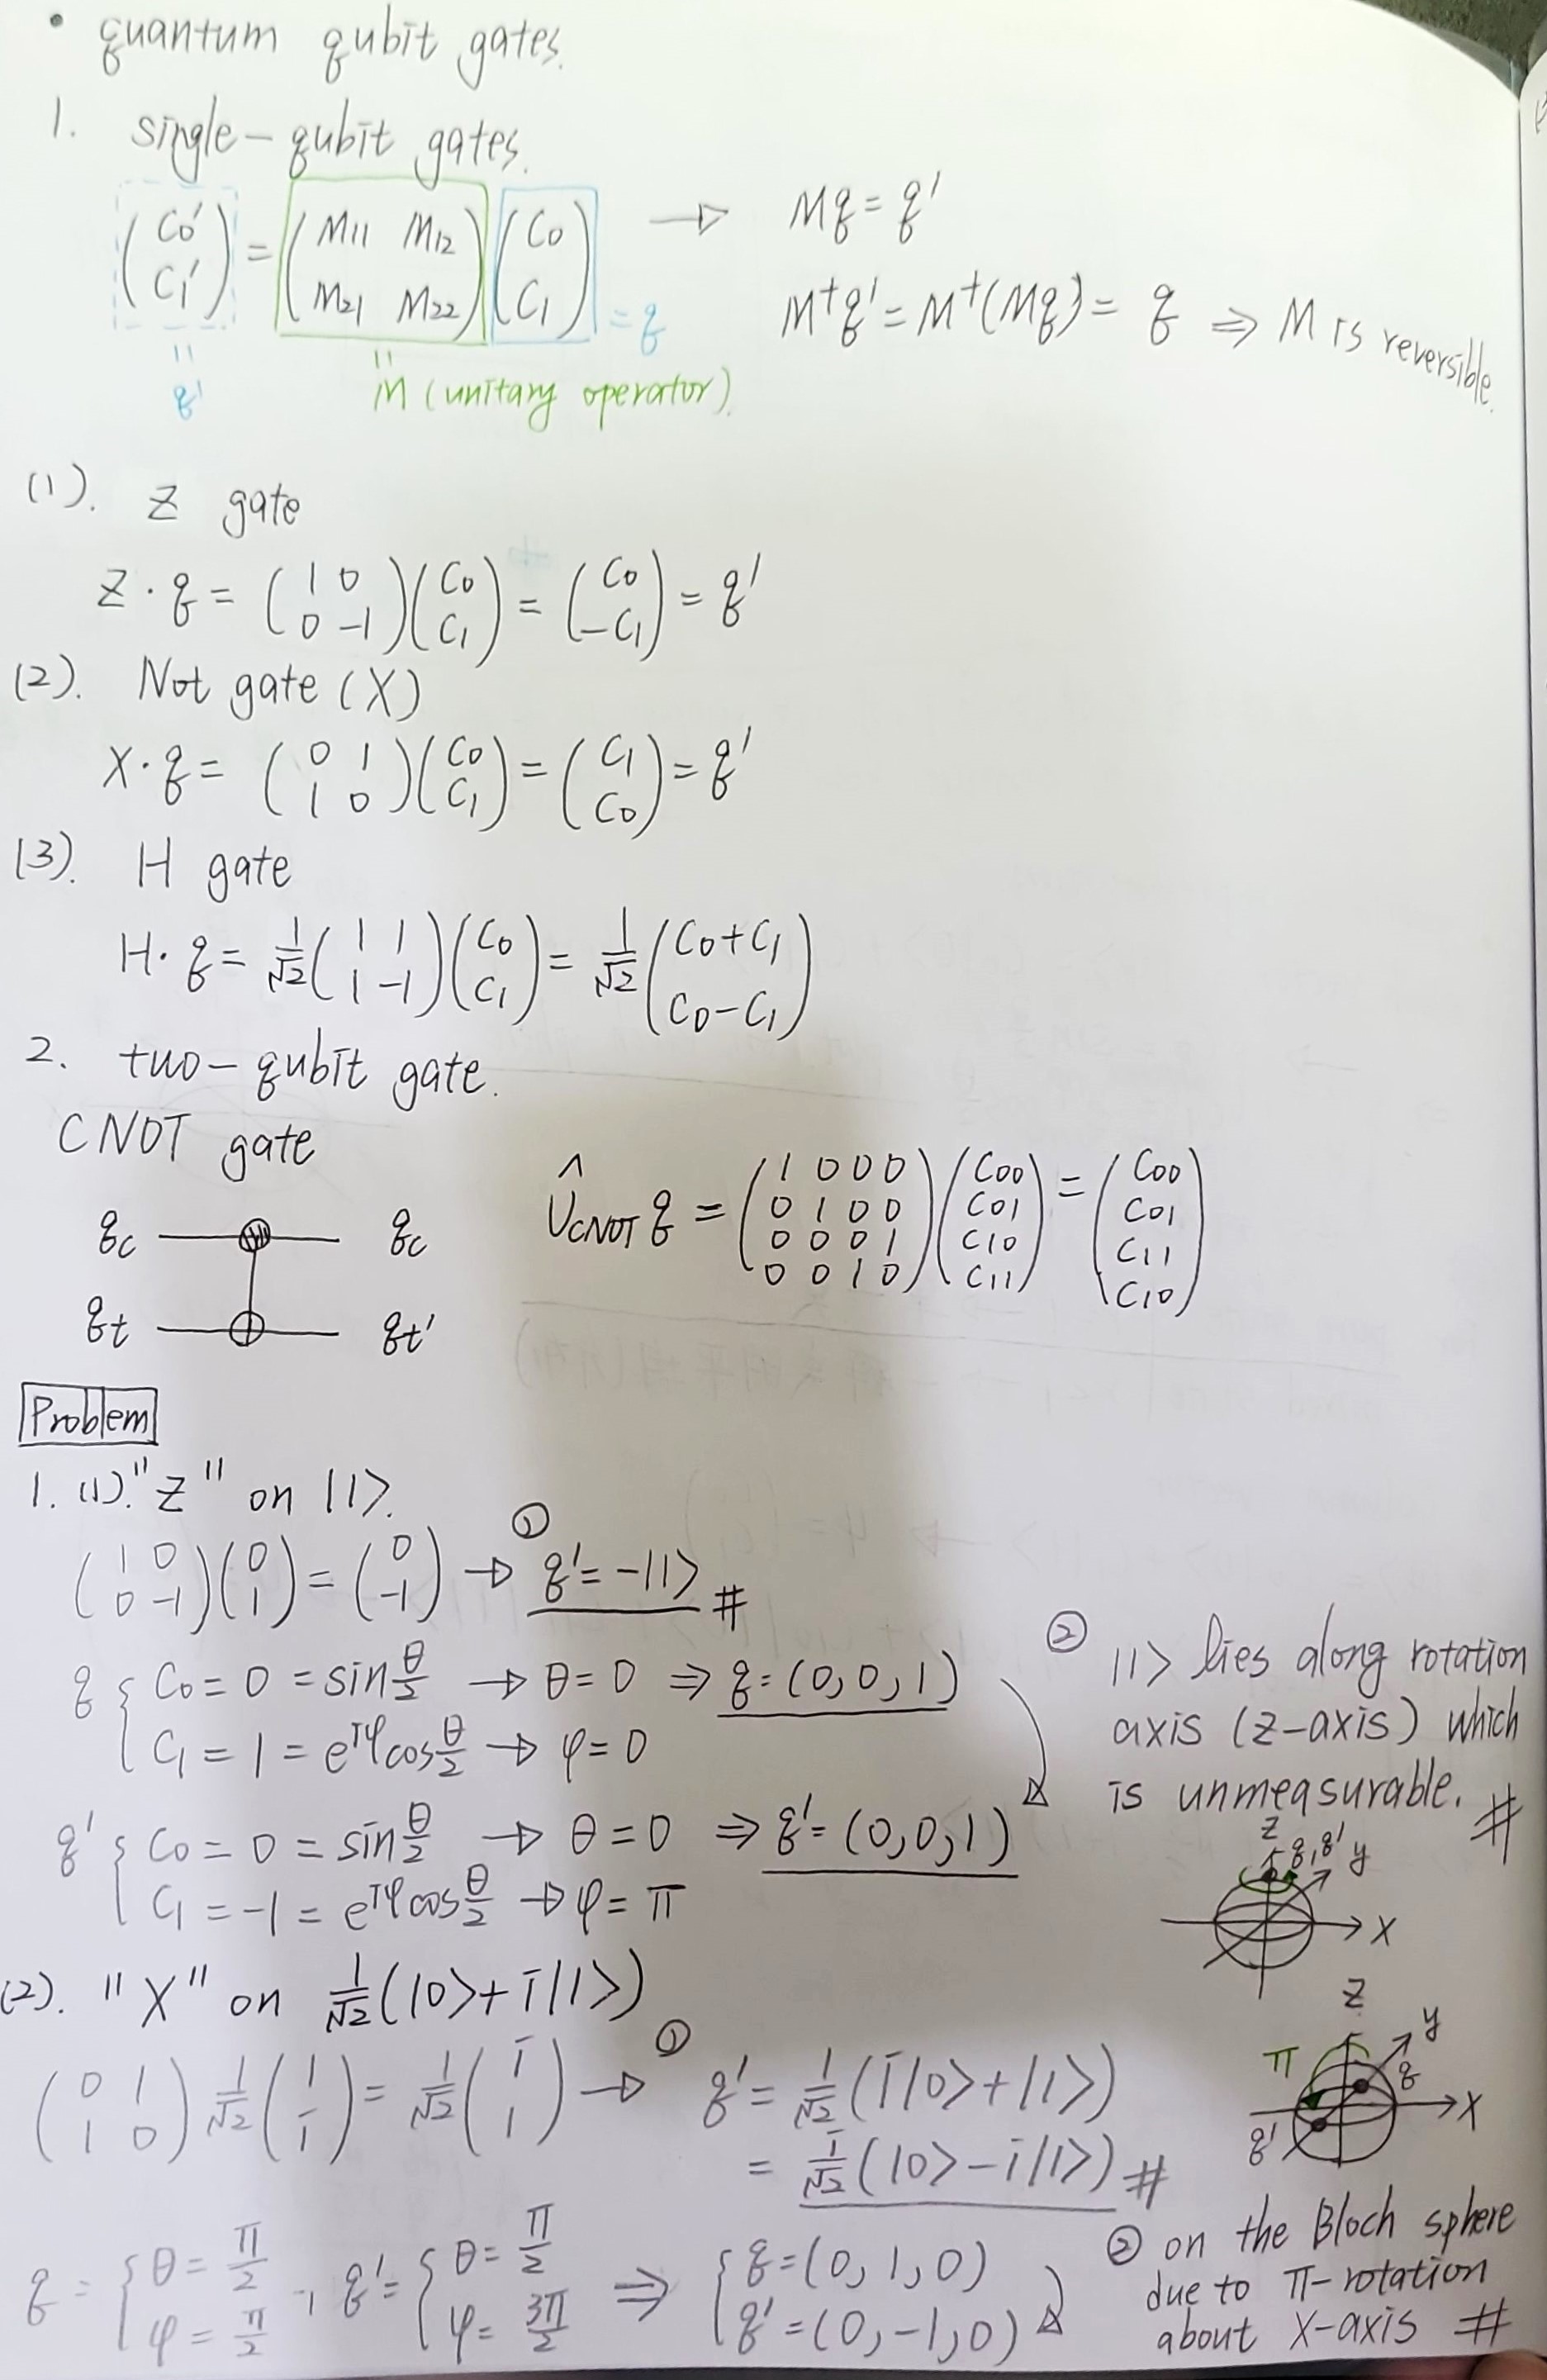 • quantum qubit gates.
1. single-qubit gates.
(C0' C1') = (M11 M12 M21 M22)(C0 C1) = q → Mq = q'
M†q' = M†(Mq) = q ⇒ M is reversible.
= q' = M (unitary operator).
(1). Z gate
Z·q = (1 0 0 -1)(C0 C1) = (C0 -C1) = q'
(2). Not gate (X)
X·q = (0 1 1 0)(C0 C1) = (C1 C0) = q'
(3). H gate
H·q = 1/√2 (1 1 1 -1)(C0 C1) = 1/√2 (C0+C1 C0-C1)
2. two-qubit gate.
CNOT gate
qc qc
qt qt'
ÛCNOT q = (1 0 0 0 0 1 0 0 0 0 0 1 0 0 1 0)(C00 C01 C10 C11) = (C00 C01 C11 C10)
Problem
1. (1). "Z" on |1>.
(1 0 0 -1)(0 1) = (0 -1) → ① q' = -|1> #
q { C0 = 0 = sin θ/2 → θ = 0 ⇒ q = (0, 0, 1)
C1 = 1 = e^iφ cos θ/2 → φ = 0
q' { C0 = 0 = sin θ/2 → θ = 0 ⇒ q' = (0, 0, 1)
C1 = -1 = e^iφ cos θ/2 → φ = π
② |1> lies along rotation
axis (z-axis) which
is unmeasurable. #
z q,q' y
x
(2). "X" on 1/√2 (|0> + i|1>)
(0 1 1 0) 1/√2 (1 i) = 1/√2 (i 1) → ① q' = 1/√2 (i|0> + |1>)
= i/√2 (|0> - i|1>) #
z
y
π q
x
q'
q = { θ = π/2 φ = π/2 , q' = { θ = π/2 φ = 3π/2 ⇒ { q = (0, 1, 0) q' = (0, -1, 0)
② on the Bloch sphere
due to π-rotation
about X-axis #